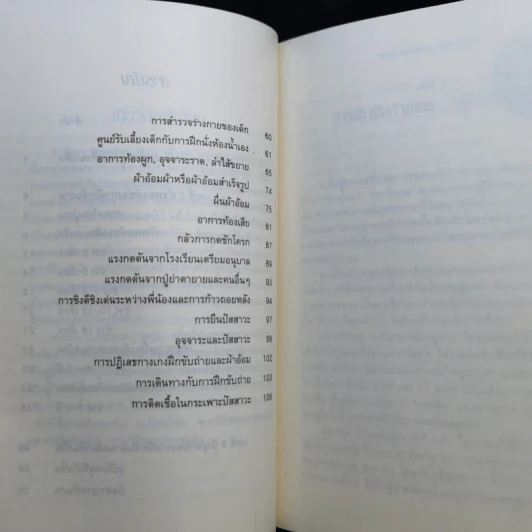 การสำรวจร่างกายของเด็ก 60
ศูนย์รับเลี้ยงเด็กกับการฝึกนั่งห้องน้ำเอง 61
อาการท้องผูก, อุจจาระราด, ลำไส้ขยาย 65
ผ้าอ้อมผ้าหรือผ้าอ้อมสำเร็จรูป 74
ผื่นผ้าอ้อม 75
อาการท้องเสีย 81
กลัวการกดชักโครก 87
แรงกดดันจากโรงเรียนเตรียมอนุบาล 89
แรงกดดันจากปู่ย่าตายายและคนอื่นๆ 93
การชิงดีชิงเด่นระหว่างพี่น้องและการก้าวถอยหลัง 94
การยืนปัสสาวะ 97
อุจจาระและปัสสาวะ 98
การปฏิเสธกางเกงฝึกขับถ่ายและผ้าอ้อม 102
การเดินทางกับการฝึกขับถ่าย 103
การติดเชื้อในกระเพาะปัสสาวะ 106